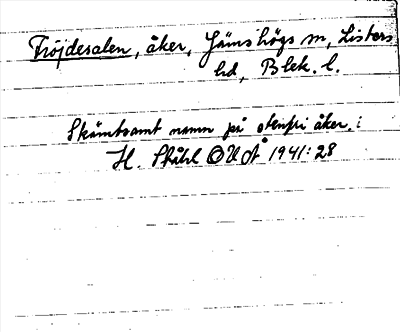 Fröjdesalen, åker, Jämshögs sn, Listers
hd, Blek. l.
Skämtsamt namn på stenfri åker, i
H. Ståhl OUÅ 1941: 28